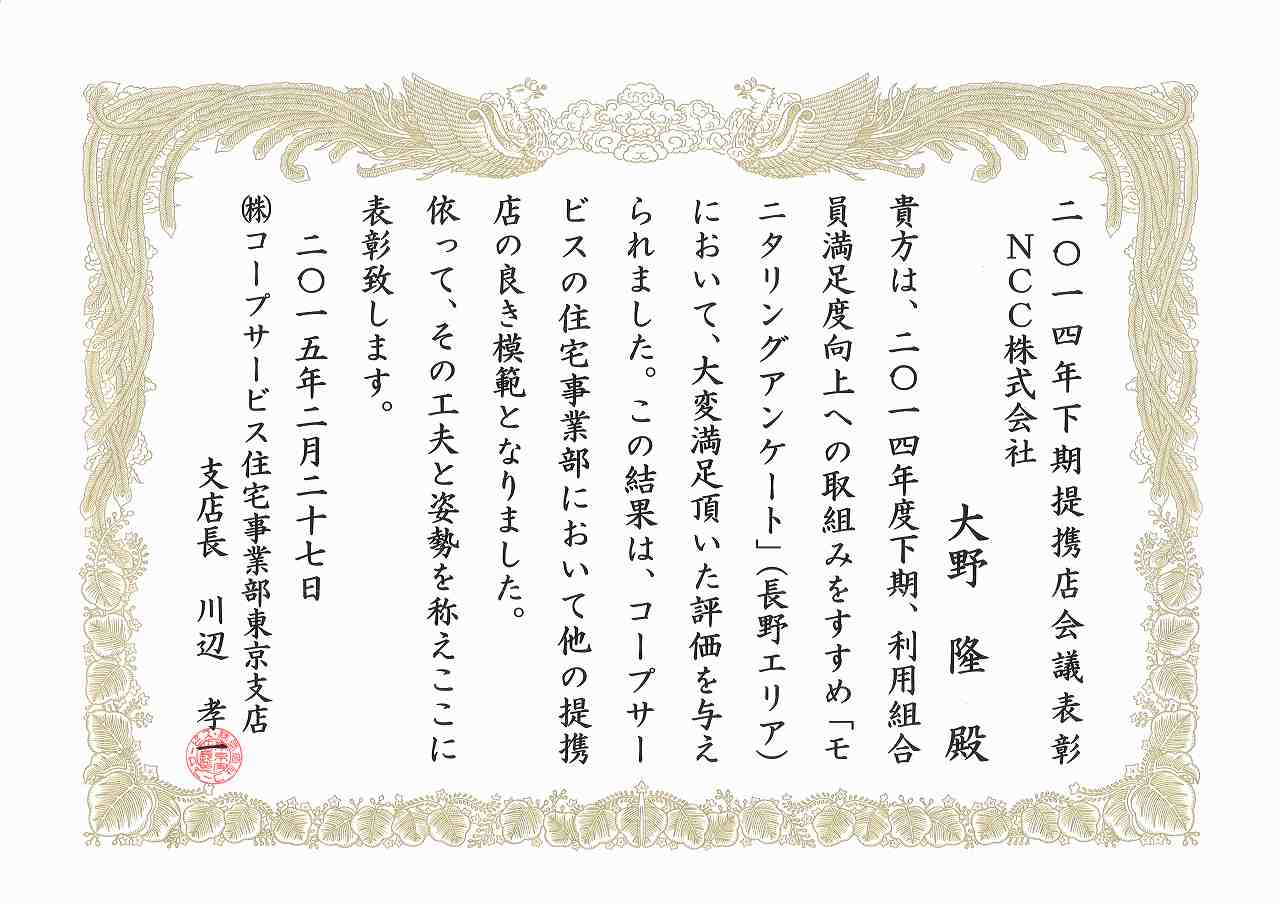 二〇一四年下期提携店会議表彰
ＮＣＣ株式会社
大野　隆　殿
貴方は、二〇一四年度下期、利用組合
員満足度向上への取組みをすすめ「モ
ニタリングアンケート」（長野エリア）
において、大変満足頂いた評価を与え
られました。この結果は、コープサー
ビスの住宅事業部において他の提携
店の良き模範となりました。
依って、その工夫と姿勢を称えここに
表彰致します。
二〇一五年二月二十七日
㈱コープサービス住宅事業部東京支店
支店長　川辺　孝一